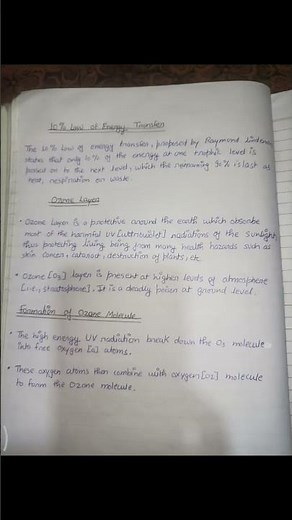 10% Law of Energy Transfer
The 10% law of energy transfer, proposed by Raymond Lindeman
states that only 10% of the energy at one trophic level is
passed on to the next level, which the remaining 90% is lost as
heat, respiration or waste
Ozone Layer
• Ozone layer is a protective around the earth which absorbe
most of the harmful UV [ultraviolet] radiations of the sunlight,
thus protecting living being from many health hazards such as
skin cancer, cataract, destruction of plants, etc
• Ozone [O3] layer is present at higher levels of atmosphere
[i.e., stratosphere]. It is a deadly poison at ground level.
Formation of Ozone Molecule
• The high energy UV radiation break down the O2 molecule
into free oxygen [O] atoms.
• These oxygen atoms then combine with oxygen [O2] molecule
to form the Ozone molecule.